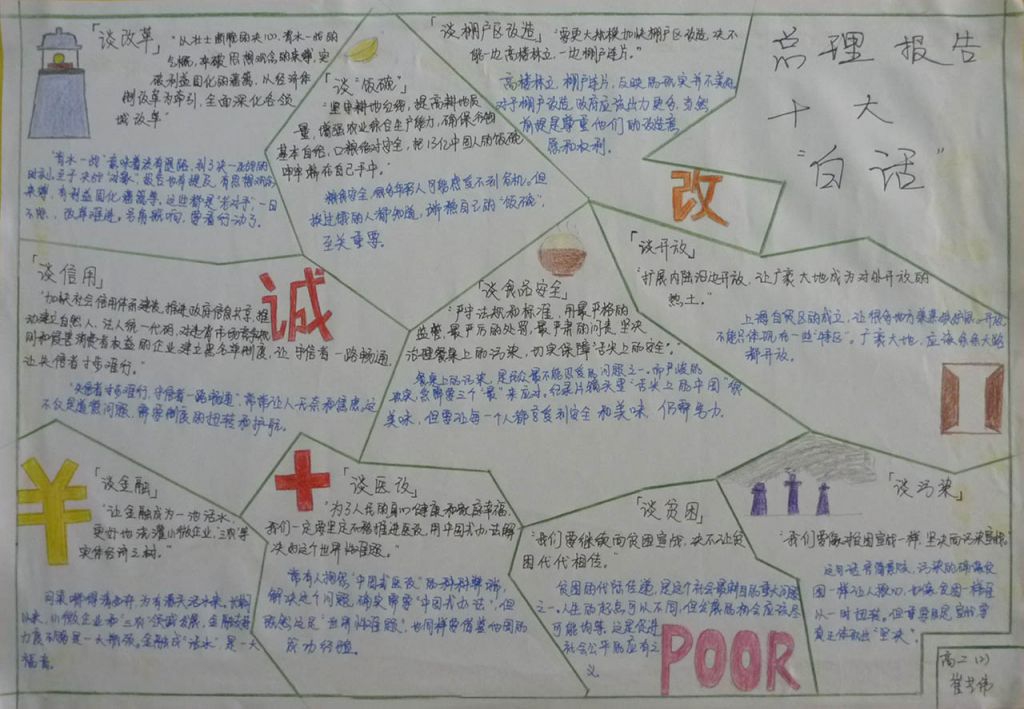 总理报告
十大
“白话”
「谈改革」
“从壮士断腕的决心、背水一战的
气概，冲破思想观念的束缚，突
破利益固化的藩篱，以经济体
制改革为牵引，全面深化各领
域改革”
「谈“饭碗”」
“坚守耕地红线，提高耕地质
量，增强农业综合生产能力，确保谷物
基本自给、口粮绝对安全，把13亿中国人的饭碗
牢牢端在自己手中。”
粮食安全
但
挨过饿的人都知道，端稳自己的“饭碗”，
至关重要。
「谈棚户区改造」
“要更大规模加快棚户区改造，决不
能一边高楼林立，一边棚户连片。”
高楼林立，棚户连片，反映的现实并不美好，
对于棚户改造，政府应该出力更多，当然
前提是尊重他们的改造意
愿和权利。
改
「谈信用」
“加快社会信用体系建设，推进政府信息共享，推
动建立自然人、法人统一代码，对违背市场竞争原
则和侵害消费者权益的企业建立黑名单制度，让
失信者寸步难行，守信者一路畅通。”
诚
“失信者寸步难行，守信者一路畅通”，
不仅是道德问题，需要制度的扭转和护航。
「谈食品安全」
“严守法规和标准，用最严格的
监管、最严厉的处罚、最严肃的问责，坚决
治理餐桌上的污染，切实保障‘舌尖上的安全’。”
餐桌上的污染，是民众最不能忍受的问题之一。
三个“最”来应对。纪录片镜头里“舌尖上的中国”很
美味，但要让每一个人都享受到安全和美味，仍需努力。
「谈开放」
“扩展内陆沿边开放，让广袤大地成为对外开放的
热土。”
上海自贸区的成立，让很多地方
不能只体现在一些“特区”。广袤大地，应该条条大路
都开放。
「谈金融」
“让金融成为一池活水，
更好地浇灌小微企业、“三农”等
实体经济之树。”
问渠哪得清如许，为有源头活水来。长期
以来，小微企业和“三农”
力度
金融成“活水”，是一大
福音。
「谈医改」
“为了人民的身心健康和家庭幸福，
我们一定要坚定不移推进医改，用中国式办法解
决好这个世界性难题。”
常有人抱怨“中国式医改”的种种弊端，
解决这个问题，确实需要“中国式办法”，但
既然这是“世界性难题”，也同样要借鉴他国的
成功经验。
「谈贫困」
“我们要继续向贫困宣战，决不让贫
困代代相传。”
贫困的代际传递，是这个社会最棘手的重大问题
之一。人生的起点可以不同，但发展机会应该尽
可能均等，这是促进
社会公平的应有之
义
POOR
「谈污染」
“我们要像向贫困宣战一样，坚决向污染宣战。”
污染的确像贫
困一样让人揪心，
以一时扭转。但重要的是宣战
真正体现出“坚决”。
高二(2)